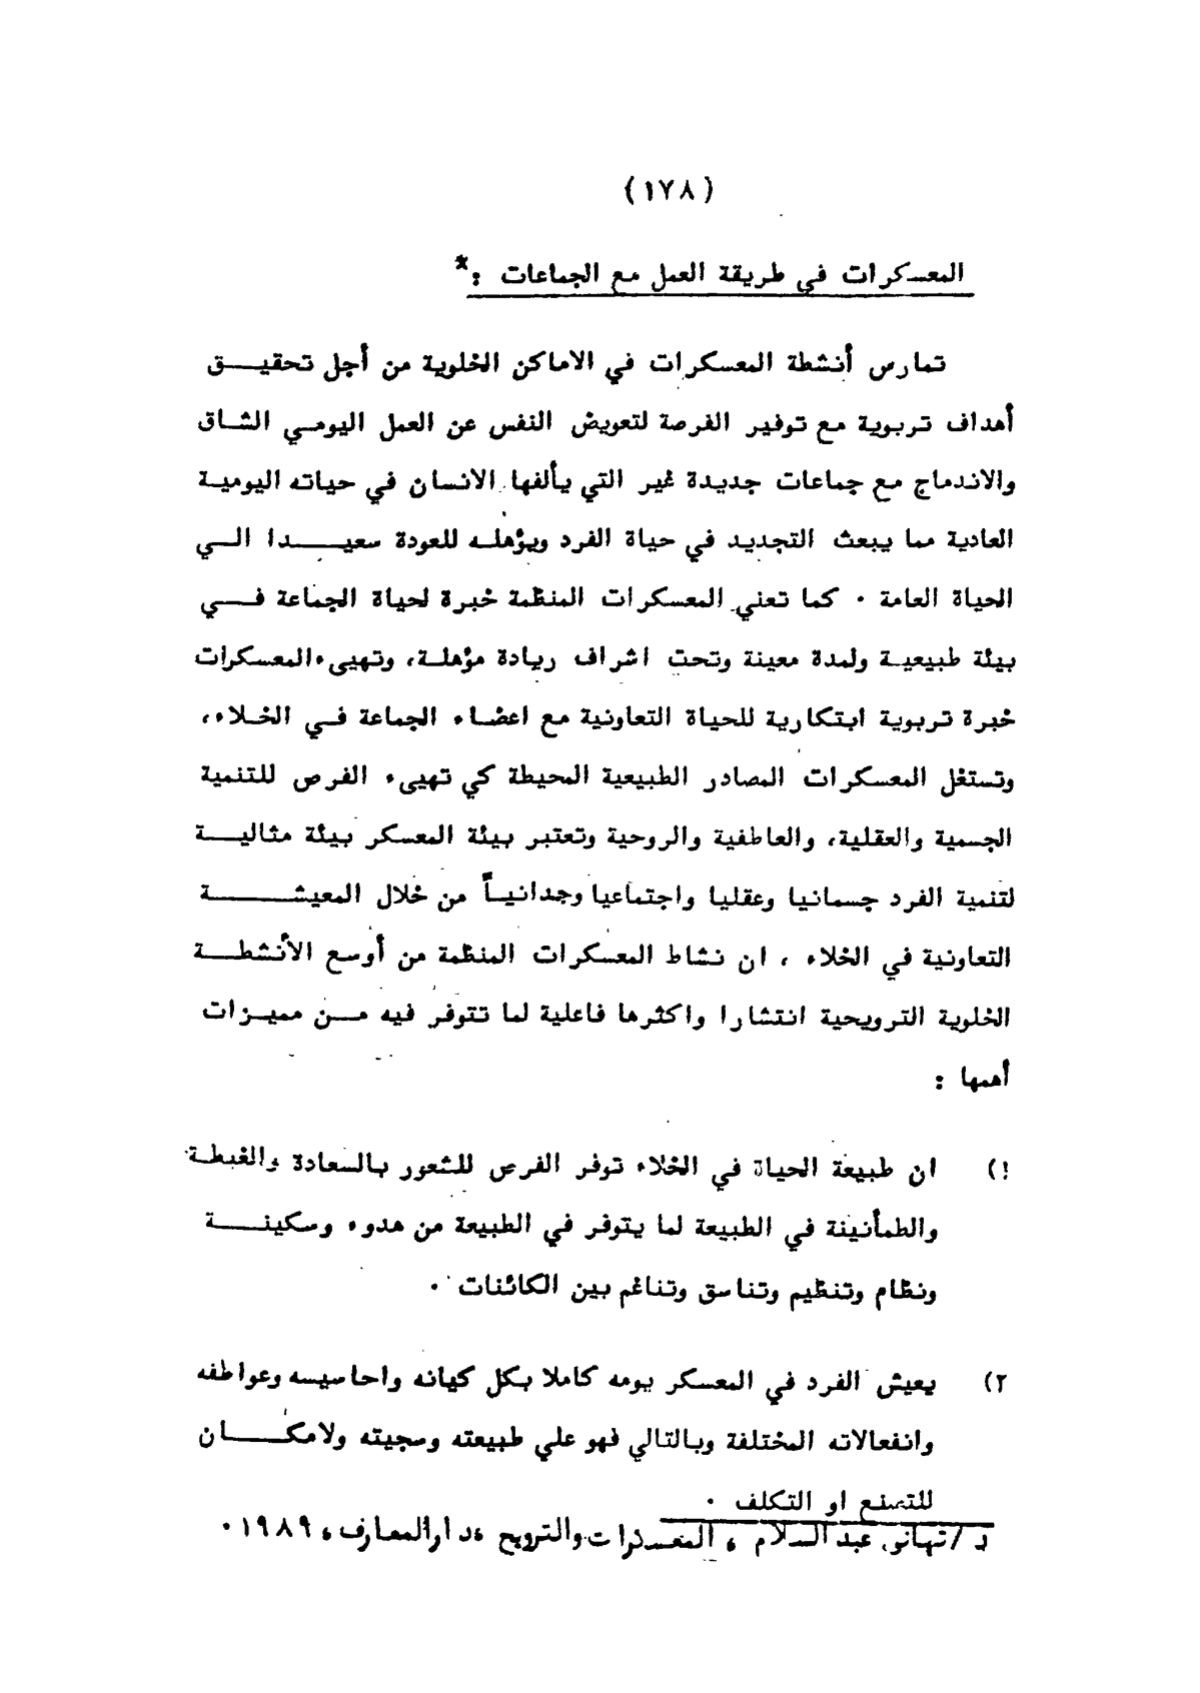 (١٧٨)
المعسكرات في طريقة العمل مع الجماعات :*
تمارس أنشطة المعسكرات في الاماكن الخلوية من أجل تحقيق
أهداف تربوية مع توفير الفرصة لتعويض النفس عن العمل اليومي الشاق
والاندماج مع جماعات جديدة غير التي يألفها الانسان في حياته اليومية
العادية مما يبعث التجديد في حياة الفرد ويؤهله للعودة سعيدا الي
الحياة العامة . كما تعني المعسكرات المنظمة خبرة لحياة الجماعة في
بيئة طبيعية ولمدة معينة وتحت اشراف ريادة مؤهلة، وتهيىء المعسكرات
خبرة تربوية ابتكارية للحياة التعاونية مع اعضاء الجماعة في الخلاء،
وتستغل المعسكرات المصادر الطبيعية المحيطة كي تهيىء الفرص للتنمية
الجسمية والعقلية، والعاطفية والروحية وتعتبر بيئة المعسكر بيئة مثالية
لتنمية الفرد جسمانيا وعقليا واجتماعيا وجدانياً من خلال المعيشة
التعاونية في الخلاء ، ان نشاط المعسكرات المنظمة من أوسع الأنشطة
الخلوية الترويحية انتشارا واكثرها فاعلية لما تتوفر فيه من مميزات
أهمها :
١) ان طبيعة الحياة في الخلاء توفر الفرص للشعور بالسعادة والغبطة
والطمأنينة في الطبيعة لما يتوفر في الطبيعة من هدوء وسكينة
ونظام وتنظيم وتناسق وتناغم بين الكائنات .
٢) يعيش الفرد في المعسكر يومه كاملا بكل كيانه واحاسيسه وعواطفه
وانفعالاته المختلفة وبالتالي فهو علي طبيعته وسجيته ولامكان
للتصنع او التكلف .
د /تهاني عبد السلام ، المعسكرات والترويح ،دار المعارف، ١٩٨٩ .